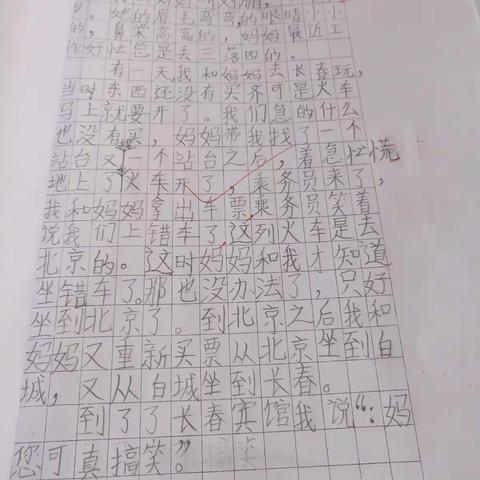 。她的眉毛弯弯的眼睛小小
的，鼻梁高高的，妈妈最近工
作好忙总是丢三落四的。
有一天我和妈妈去长春玩，
当时东西还没有买齐可是火车
马上就要开了。我们急的什么
也没有买，妈妈带我找了一个
站台又一个站台之后，着急忙慌
地上了火车开了，乘务员来了，
我和妈妈拿出车票乘务员笑着
说我们上错车了这列火车是去
北京的。这时妈妈和我才知道
坐错车了。那也没办法了，只好
坐到北京了。到北京之后我和
妈妈又重新买票从北京坐到白
城，又从白城坐到长春。
到了了长春宾馆我说“：妈
您可真搞笑”。